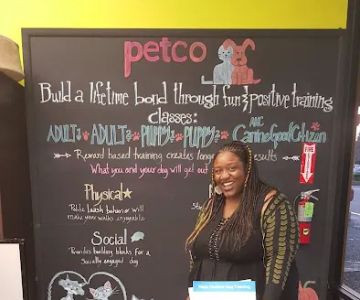 petco
Build a lifetime bond through fun & positive training
classes:
AKC
ADULT 1 ADULT 2 PUPPY 1 PUPPY 2 Canine Good Citizen
Reward based training creates results
What you and your dog will get out
Physical
Polite leash behavior will
make your walks enjoyable
Social
Provides building blocks for a
Socially engaged dog
FIRE